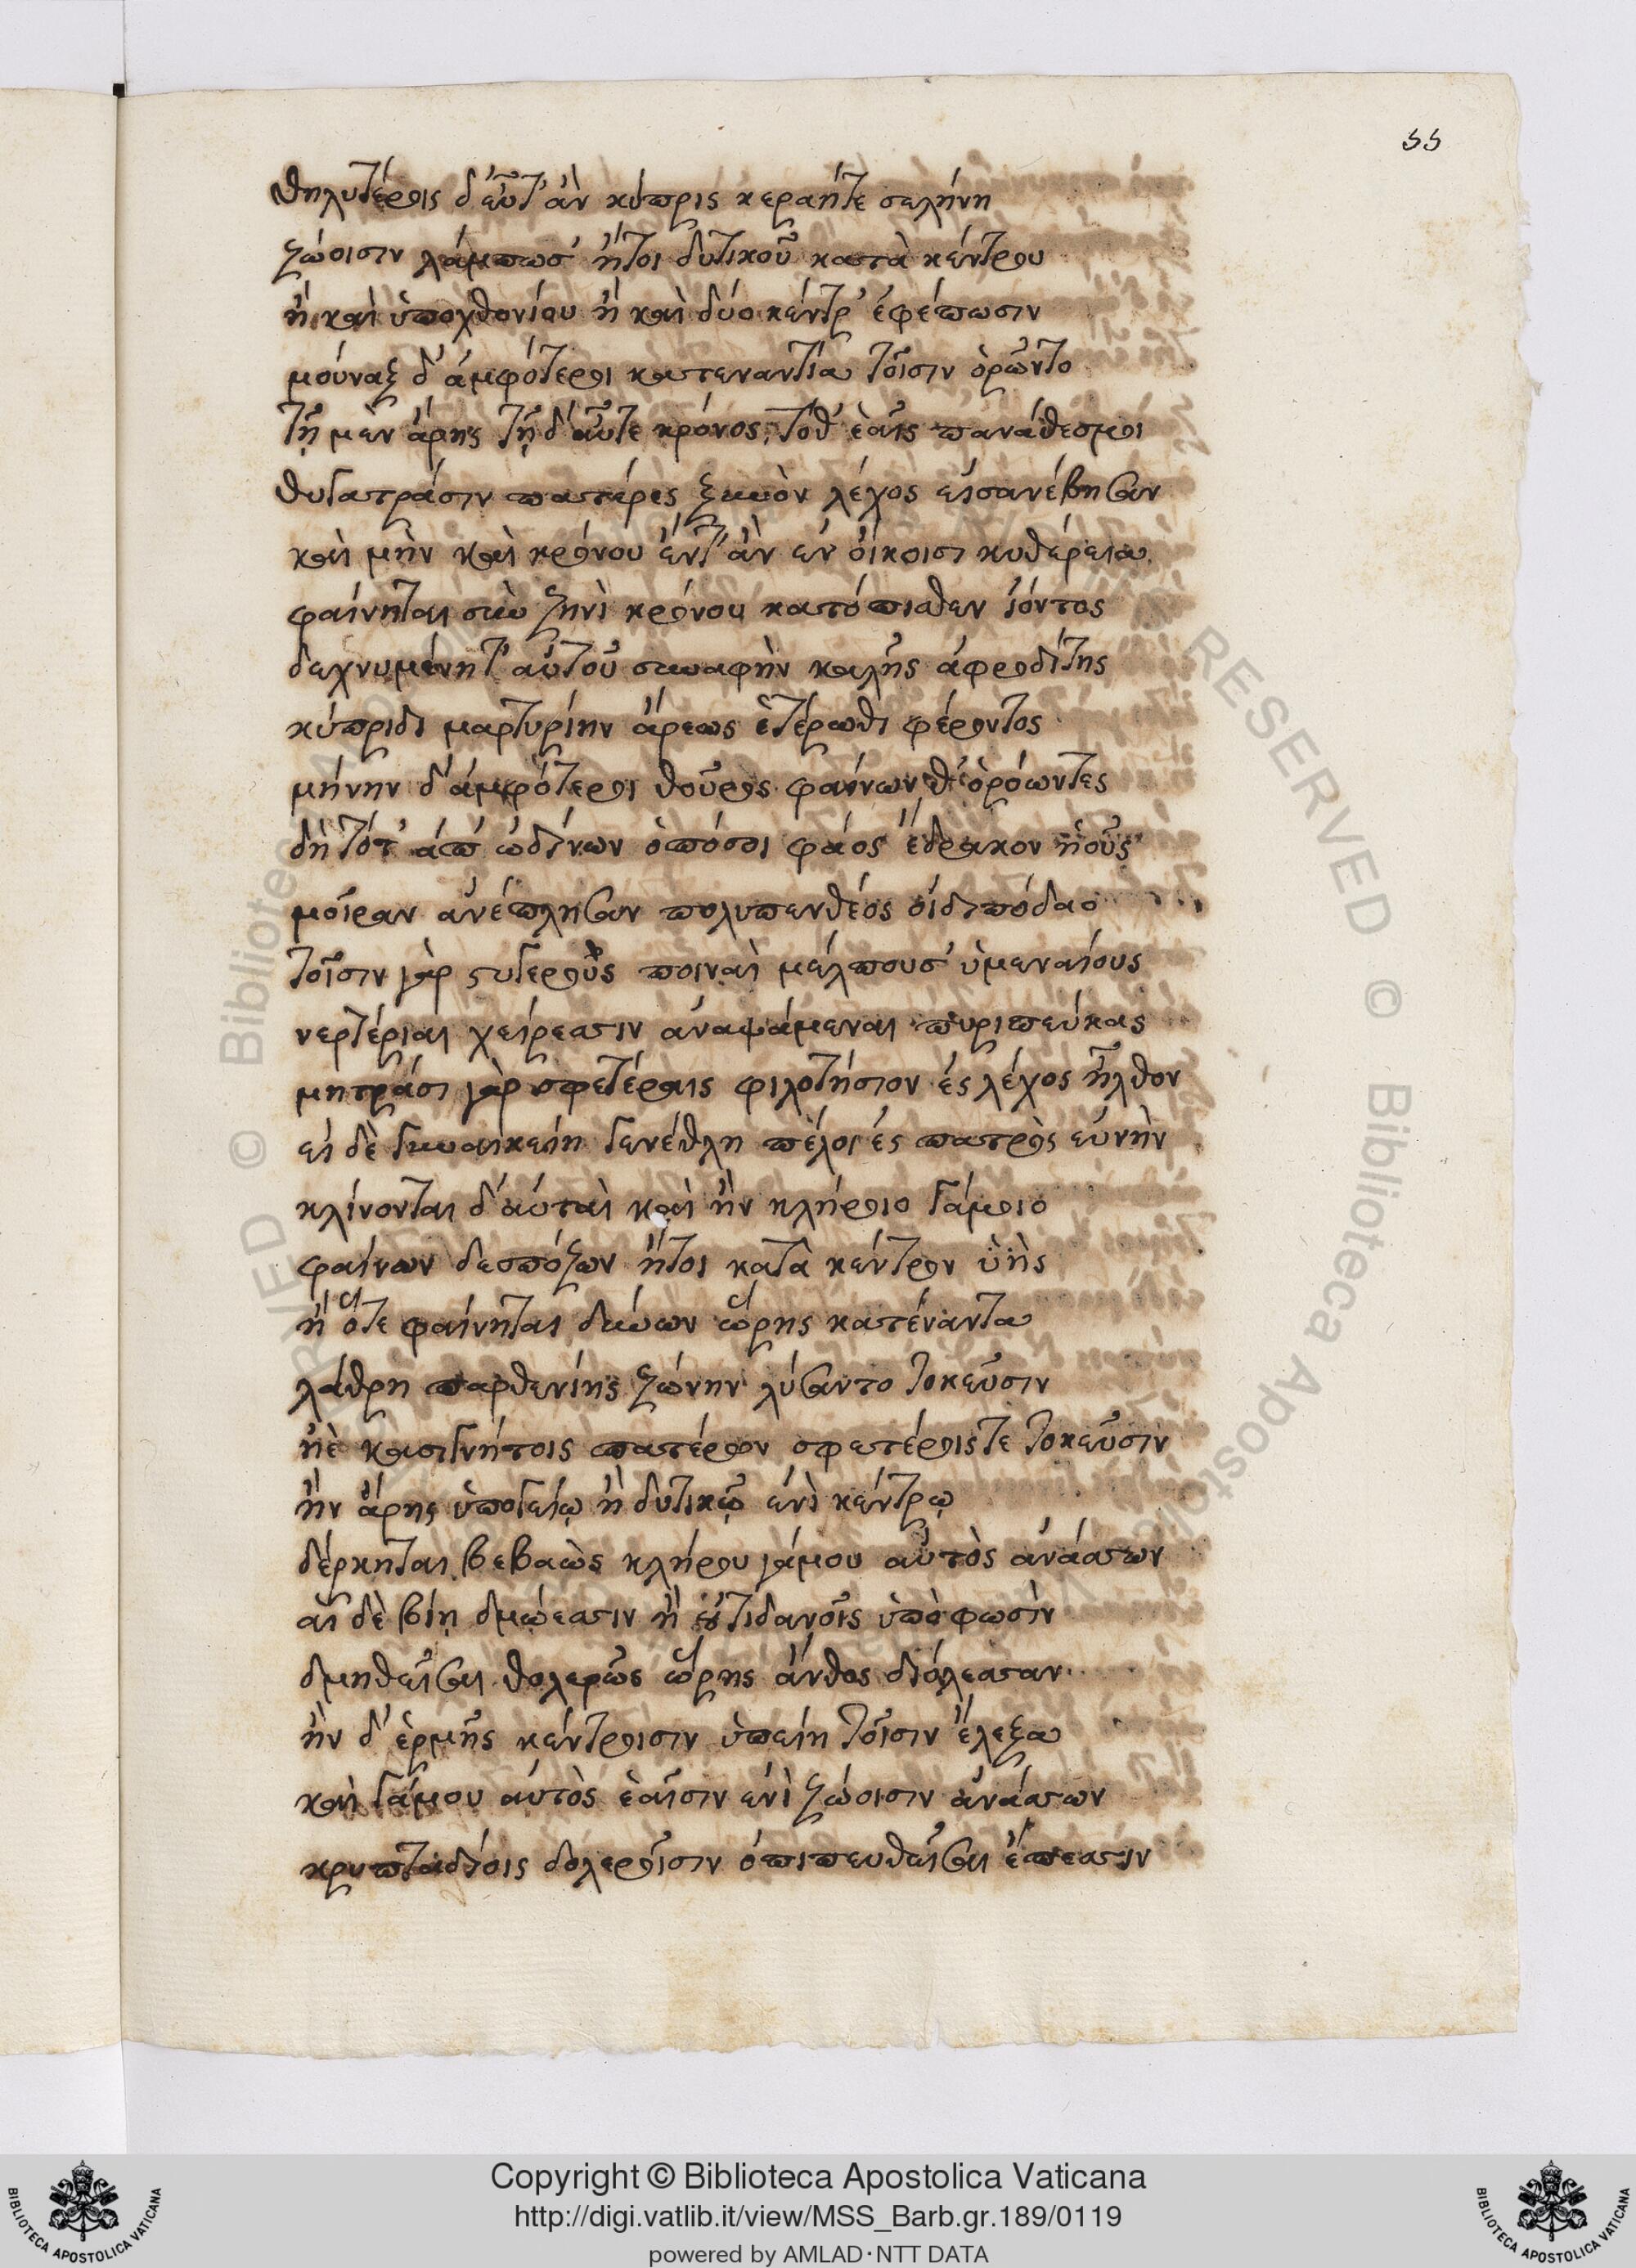 55
θηλυτέροις δ' εὖτ' ἂν κύπρις κεραήτε σελήνη
ζώοισιν λάμπωσ' ἤτοι δυτικοῦ κατὰ κέντρου
ἢ καὶ ὑποχθονίου ἢ καὶ δύο κέντρ' ἐφέπωσιν
μούναξ δ' ἀμφότεροι κατεναντία τοῖσιν ὁρῶντο
τῇ μὲν ἄρης τῇ δ' αὖτε κρόνος, τόθ' ἑαῖς πανάθεσμοι
θυγατράσιν πατέρες ξυνὸν λέχος εἰσανέβησαν
καὶ μὴν καὶ κρόνου εὖτ' ἂν ἐν οἴκοισι κυθέρεια
φαίνηται σὺν ζηνὶ κρόνου κατόπισθεν ἰόντος
δεχνυμένητ' αὐτοῦ συναφὴν καλῆς ἀφροδίτης
κύπριδι μαρτυρίην ἄρεως ἑτέρωθι φέροντος
μήνην δ' ἀμφότεροι θοῦρος φαίνων θ' ὁρόωντες
δὴ τότ' ἀπ' ὠδίνων ὁπόσοι φάος ἔδρακον ἠοῦς
μοῖραν ἀνέπλησαν πολυπενθέος οἰδιπόδαο
τοῖσιν γὰρ στυγεροὺς ποιναὶ μέλπουσ' ὑμεναίους
νερτέριαι χείρεσσιν ἀναψάμεναι πυριπεύκας
μητράσι γὰρ σφετέραις φιλοτήσιον ἐς λέχος ἦλθον
εἰ δὲ γυναικείη γενέθλη πέλοι ἐς πατρὸς εὐνὴν
κλίνονται δ' αὐταὶ καὶ ἢν κλήροιο γάμοιο
φαίνων δεσπόζων ἤτοι κατὰ κέντρον ὑῆς
ἢ ὅτε φαίνηται δύνων ὥρης κατέναντα
λάθρη παρθενίης ζώνην λύσαντο τοκεῦσιν
ἠὲ κασιγνήτοις πατέρων σφετέροις τε τοκεῦσιν
ἢν ἄρης ὑπογείῳ ἢ δυτικῷ ἐνὶ κέντρῳ
δέρκηται βεβαὼς κλήρου γάμου αὐτὸς ἀνάσσων
αἳ δὲ βίῃ δμώεσσιν ἢ οὐτιδανοῖς ὑπὸ φωσὶν
δμηθεῖσαι θολερῶς ὥρης ἄνθος διόλεσσαν
ἢν δ' ἑρμῆς κέντροισιν ὑπείη τοῖσιν ἔλεξα
καὶ γάμου αὐτὸς ἑαῖσιν ἐνὶ ζώοισιν ἀνάσσων
κρυπταδίοις δολεροῖσιν ὀπιπευθεῖσαι ἔπεσσιν
Copyright © Biblioteca Apostolica Vaticana
http://digi.vatlib.it/view/MSS_Barb.gr.189/0119
powered by AMLAD·NTT DATA